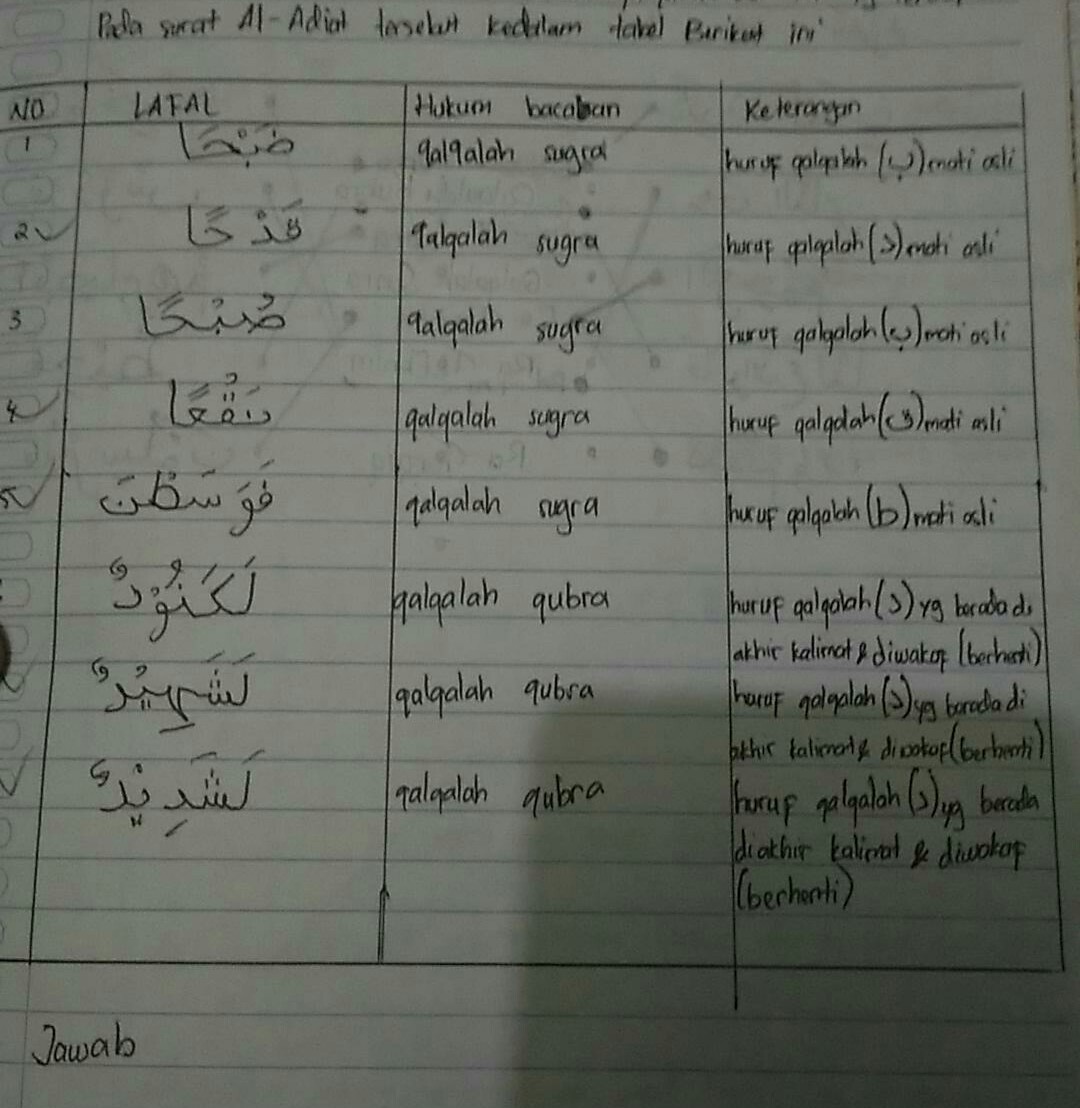 Pada surat Al-Adiat tersebut kedalam tabel Berikut ini
NO LAFAL Hukum bacaban Keterangan
1 ضَبْحًا qalqalah sugra huruf qalqalah (ب) mati asli
2 قَدْحًا qalqalah sugra huruf qalqalah (د) mati asli
3 صُبْحًا qalqalah sugra huruf qalqalah (ب) mati asli
4 نَقْعًا qalqalah sugra huruf qalqalah (ق) mati asli
5 فَوَسَطْنَ qalqalah sugra huruf qalqalah (b) mati asli
لَكَنُوْدٌ qalqalah qubra huruf qalqalah (د) yg berada di
akhir kalimat & diwakof (berhenti)
لَشَهِيْدٌ qalqalah qubra huruf qalqalah (د) yg berada di
akhir kalimat & diwakof (berhenti)
لَشَدِيْدٌ qalqalah qubra huruf qalqalah (د) yg berada
diakhir kalimat & diwakof
(berhenti)
Jawab